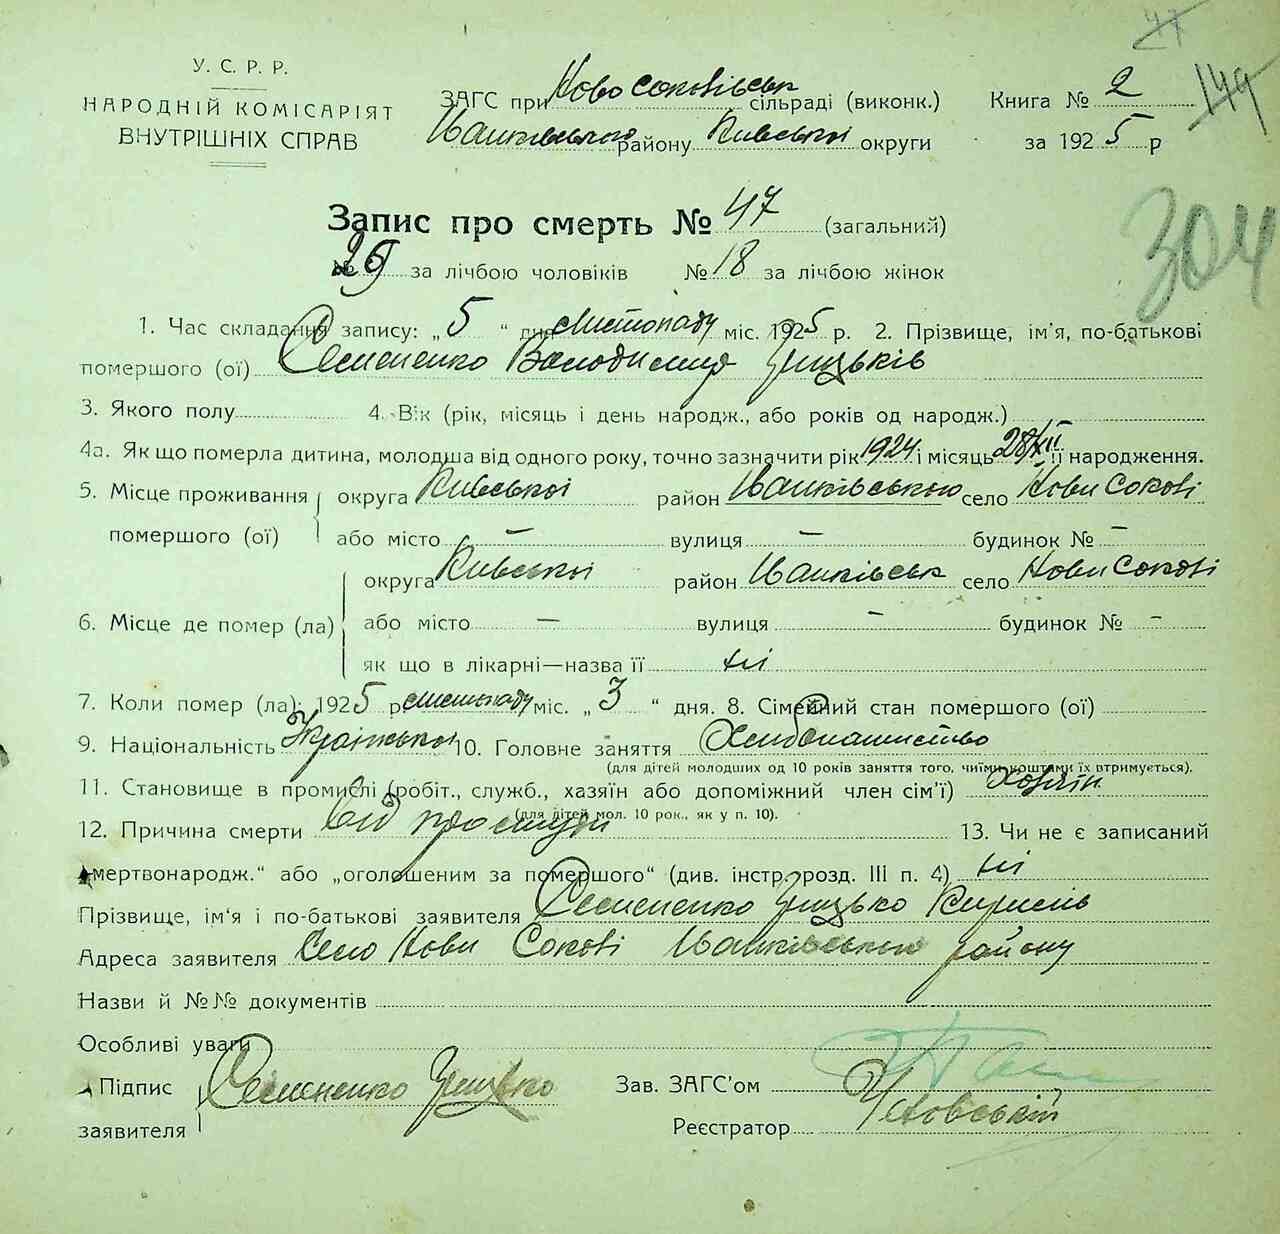 47
У. С. Р. Р.
НАРОДНІЙ КОМІСАРІЯТ
ВНУТРІШНІХ СПРАВ
ЗАГС при Ново Соковівськ сільраді (виконк.)
Іванківського району Київської округи
Книга № 2
за 1925 р
149
Запис про смерть № 47 (загальний)
304
№ 29 за лічбою чоловіків № 18 за лічбою жінок
1. Час складання запису: „ 5 “ дня листопаду міс. 1925 р. 2. Прізвище, ім’я, по-батькові
помершого (ої) Семененко Володимир Грицьків
3. Якого полу 4. Вік (рік, місяць і день народж., або років од народж.)
4а. Як що померла дитина, молодша від одного року, точно зазначити рік 1924 і місяць 28/XII її народження.
5. Місце проживання округа Київської район Іванківського село Нови Сокові
помершого (ої) або місто — вулиця — будинок № —
округа Київської район Іванківськ село Нови Сокові
6. Місце де помер (ла) або місто — вулиця — будинок № —
як що в лікарні—назва її ні
7. Коли помер (ла): 1925 р листопаду міс. „ 3 “ дня. 8. Сімейний стан помершого (ої)
9. Національність Української 10. Головне заняття Хлібопашество
(для дітей молодших од 10 років заняття того, чиїми коштами їх втримується).
11. Становище в промислі (робіт., служб., хазяїн або допоміжний член сім’ї) Хозяїн
(для дітей мол. 10 рок., як у п. 10).
12. Причина смерти Від простуди 13. Чи не є записаний
„мертвонародж.“ або „оголошеним за помершого“ (див. інстр. розд. III п. 4) ні
Прізвище, ім’я і по-батькові заявителя Семененко Грицько Кирилів
Адреса заявителя Село Нови Сокові Іванківського району
Назви й №№ документів
Особливі уваги
Підпис заявителя Семененко Грицько
Зав. ЗАГС’ом
Реєстратор